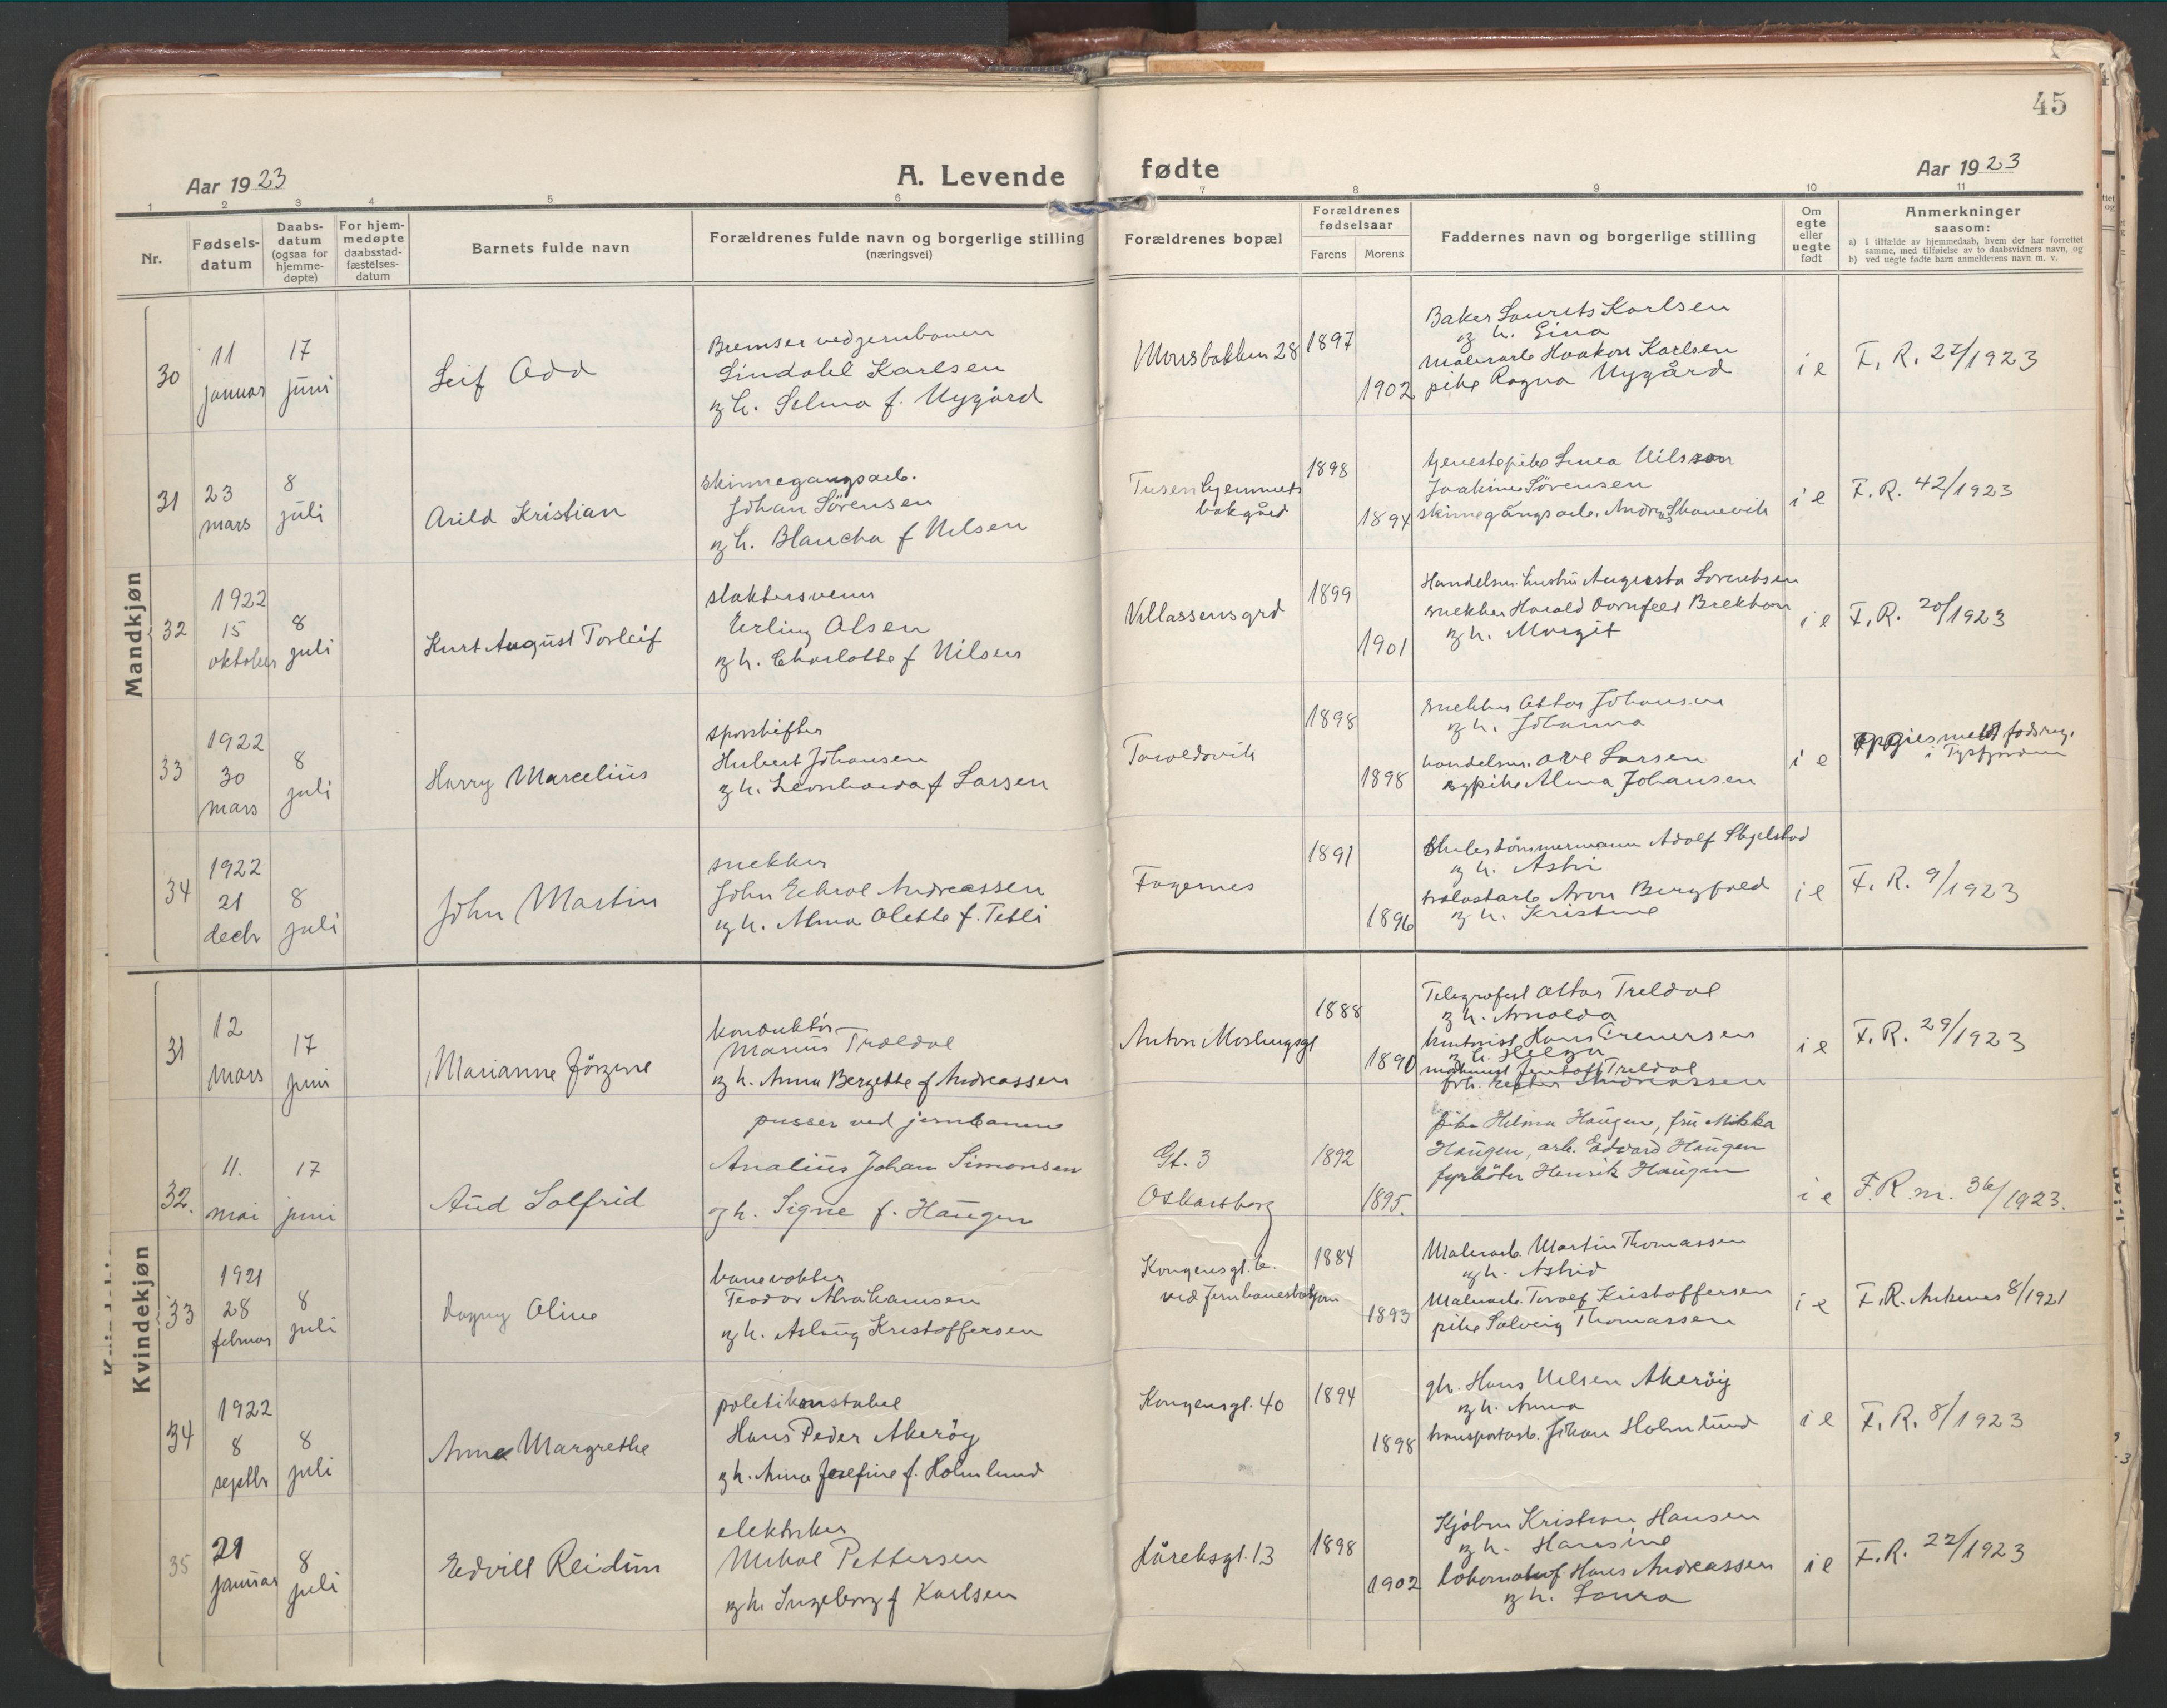 45
Aar 1923
A. Levende
fødte
Aar 1923
1 2 3 4 5 6 7 8 9 10 11
Nr.
Fødsels-
datum
Daabs-
datum
(ogsaa for
hjemme-
døpte)
For hjem-
medøpte
daabsstad-
fæstelses-
datum
Barnets fulde navn
Forældrenes fulde navn og borgerlige stilling
(næringsvei)
Forældrenes bopæl
Forældrenes
fødselsaar
Farens Morens
Faddernes navn og borgerlige stilling
Om
egte
eller
uegte
født
Anmerkninger
saasom:
a) I tilfælde av hjemmedaab, hvem der har forrettet
samme, med tilføielse av to daabsvidners navn, og
b) ved uegte fødte barn anmelderens navn m. v.
Mandkjøn
30
11
januar
17
juni
Leif Odd
Bremser ved jernbanen
Lindahl Karlsen
og h. Selma f. Nygård
Mousbakken 28
1897
1902
Baker Laurits Karlsen
og h. Gina
Malerarb Haakon Karlsen
pike Ragna Nygård
i e
F. R. 27/1923
31
23
mars
8
juli
Arild Kristian
skinnegangsarb.
Johan Sörensen
og h. Blancha f Nilsen
Tusenhjemmets
bakgård
1898
1894
tjenestepike Linea Nilsson
Joakim Sörensen
skinnegångsarb. Andreas Skanevik
i e
F. R. 42/1923
32
1922
15
oktober
8
juli
Kurt August Torleif
slaktersvenn
Erling Olsen
og h. Charlotte f Nilsen
Villassensgrd
1899
1901
Handelsm. hustru Augusta Lorentsen
snekker Harald Dornfeld Brekhom
og h. Margit
i e
F. R. 20/1923
33
1922
30
mars
8
juli
Harry Marcelius
sporskifter
Hubert Johansen
og h. Leonharda f Larsen
Taraldsvik
1898
1898
snekker Ottar Johansen
og h. Johanna
handelsm. Ove Larsen
og pike Alma Johansen
i e
Opgies meldt fødsreg.
i Tysfjorden
34
1922
21
decbr
8
juli
John Martin
snekker
John Edvol Andreassen
og h. Alma Olette f. Tetli
Fagernes
1891
1896
Adolf Skjelstad
og h. Astri
Aron Bergfald
og h. Kristine
i e
F. R. 9/1923
Kvindekjøn
31
12
mars
17
juni
Marianne Jörgine
konduktör
Marius Trældal
og h. Anna Bergette f Andreassen
Anton Moslingsgt
1888
1890
Telegrafist Ottar Treldal
og h. Arnolda
kontorist Hans Evensen
og h. Helga
Treldal
frk. Ester Andreassen
i e
F. R. 29/1923
32.
11.
mai
17
juni
Aud Solfrid
pusser ved jernbanene
Analius Johan Simonsen
og h. Signe f. Haugen
Gt. 3
Oskarsborg
1892
1895.
pike Hilma Haugen, fru Mikka
Haugen, arb. Edvard Haugen
fyrböter Henrik Haugen
i e
F. R. nr. 36/1923.
33
1921
28
februar
8
juli
Dagny Oline
banevokter
Teodor Abrahamsen
og h. Aslaug Kristoffersen
Kongensgt. 6.
ved jernbanestasjon
1884
1893
Malerarb. Martin Thomassen
og h. Astrid
Malerarb. Toralf Kristoffersen
pike Solveig Thomassen
i e
F. R. Ankenes 8/1921
34
1922
8
septbr
8
juli
Anna Margrethe
politikonstabel
Hans Peder Akeröy
og h. Anna Josefine f. Holmlund
Kongensgt. 40
1894
1898
gbr. Hans Nilsen Akeröy
og h. Anna
transportarb. Johan Holmlund
i e
F. R. 8/1923
35
21
januar
8
juli
Edvill Reidun
elektriker
Mikal Pettersen
og h. Ingeborg f Karlsen
Håreksgt. 13
1898
1902
Kjöbm Kristian Hansen
og h. Hansine
lokomotivf. Hans Andreassen
og h. Laura
i e
F. R. 22/1923